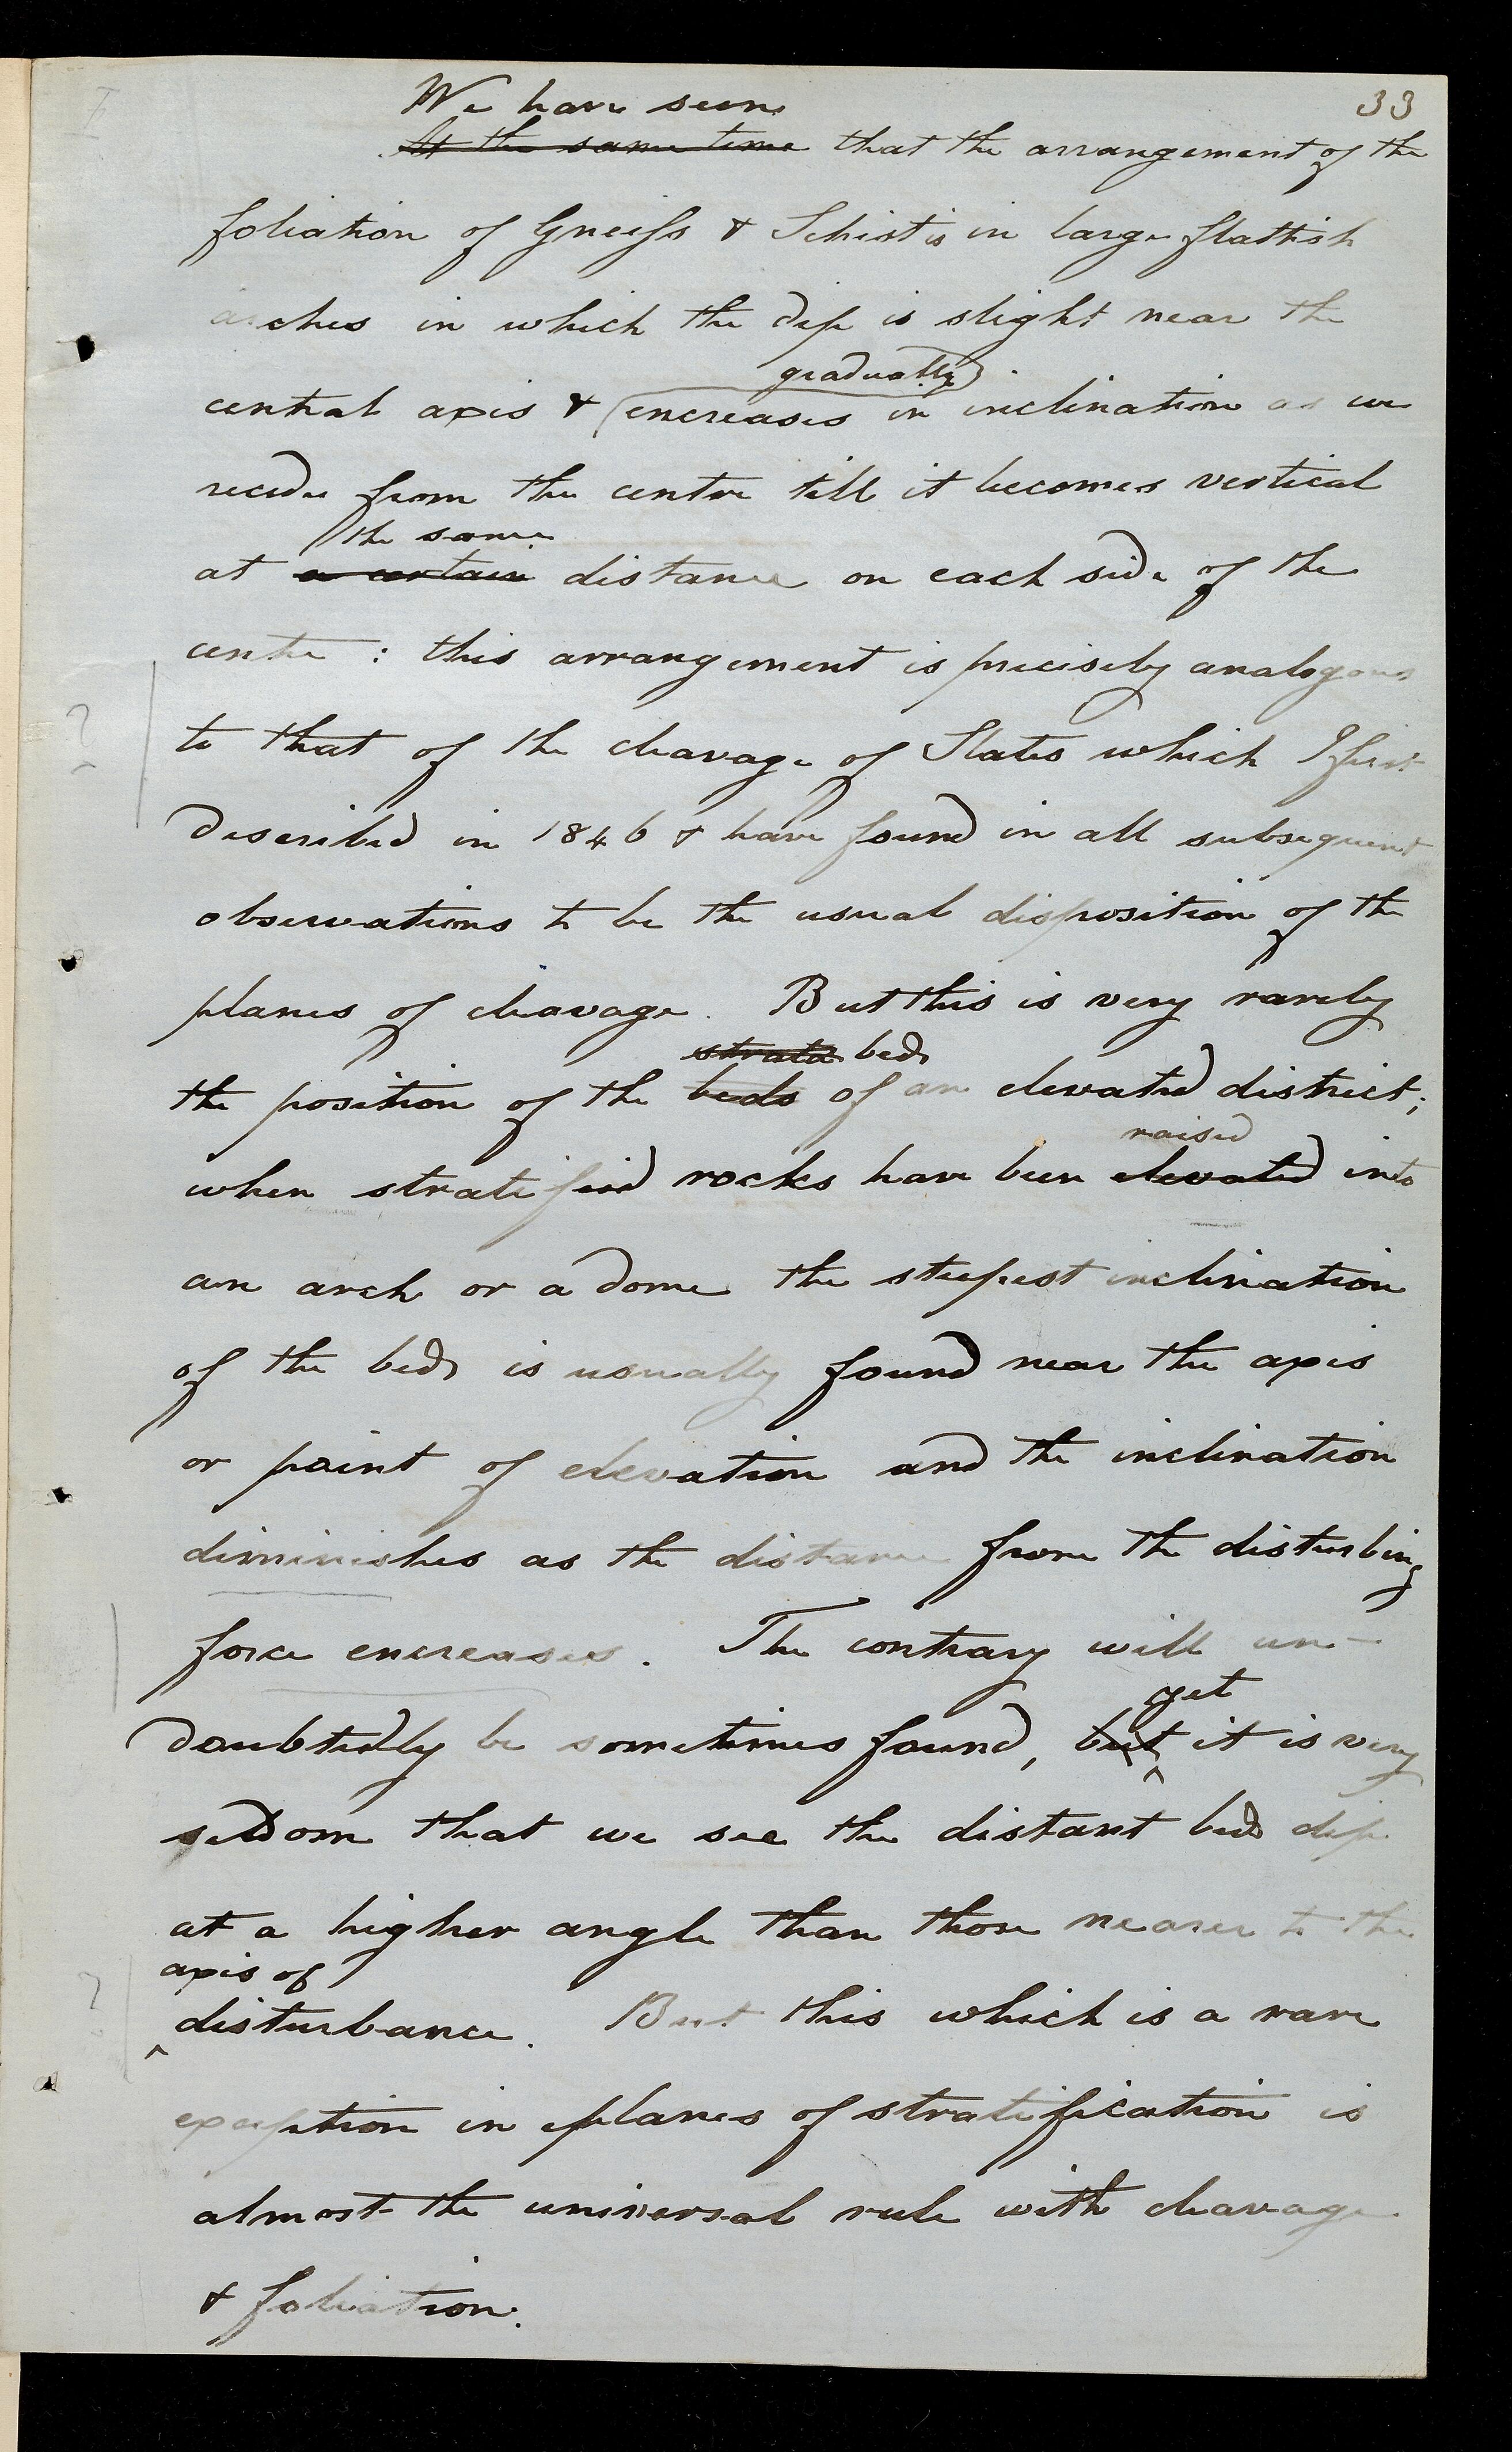 33
We have seen
At the same time that the arrangement of the
foliation of Gneiſs & Schist is in large flattish
arches in which the dip is slight near the
gradually
central axis & encreases in inclination as we
recede from the centre till it becomes vertical
the same
at a certain distance on each side of the
centre : this arrangement is precisely analogous
? to that of the cleavage of Slates which I first
described in 1846 & have found in all subsequent
observations to be the usual disposition of the
planes of cleavage. But this is very rarely
strata beds
the position of the beds of an elevated district;
raised
when stratified rocks have been elevated into
an arch or a dome the steepest inclination
of the beds is usually found near the axis
or point of elevation and the inclination
diminishes as the distance from the disturbing
force encreases. The contrary will un-
yet
doubtedly be sometimes found, but it is very
seldom that we see the distant beds dip
at a higher angle than those nearer to the
axis of
? disturbance. But this which is a rare
exception in planes of stratification is
almost the universal rule with cleavage
& foliation.